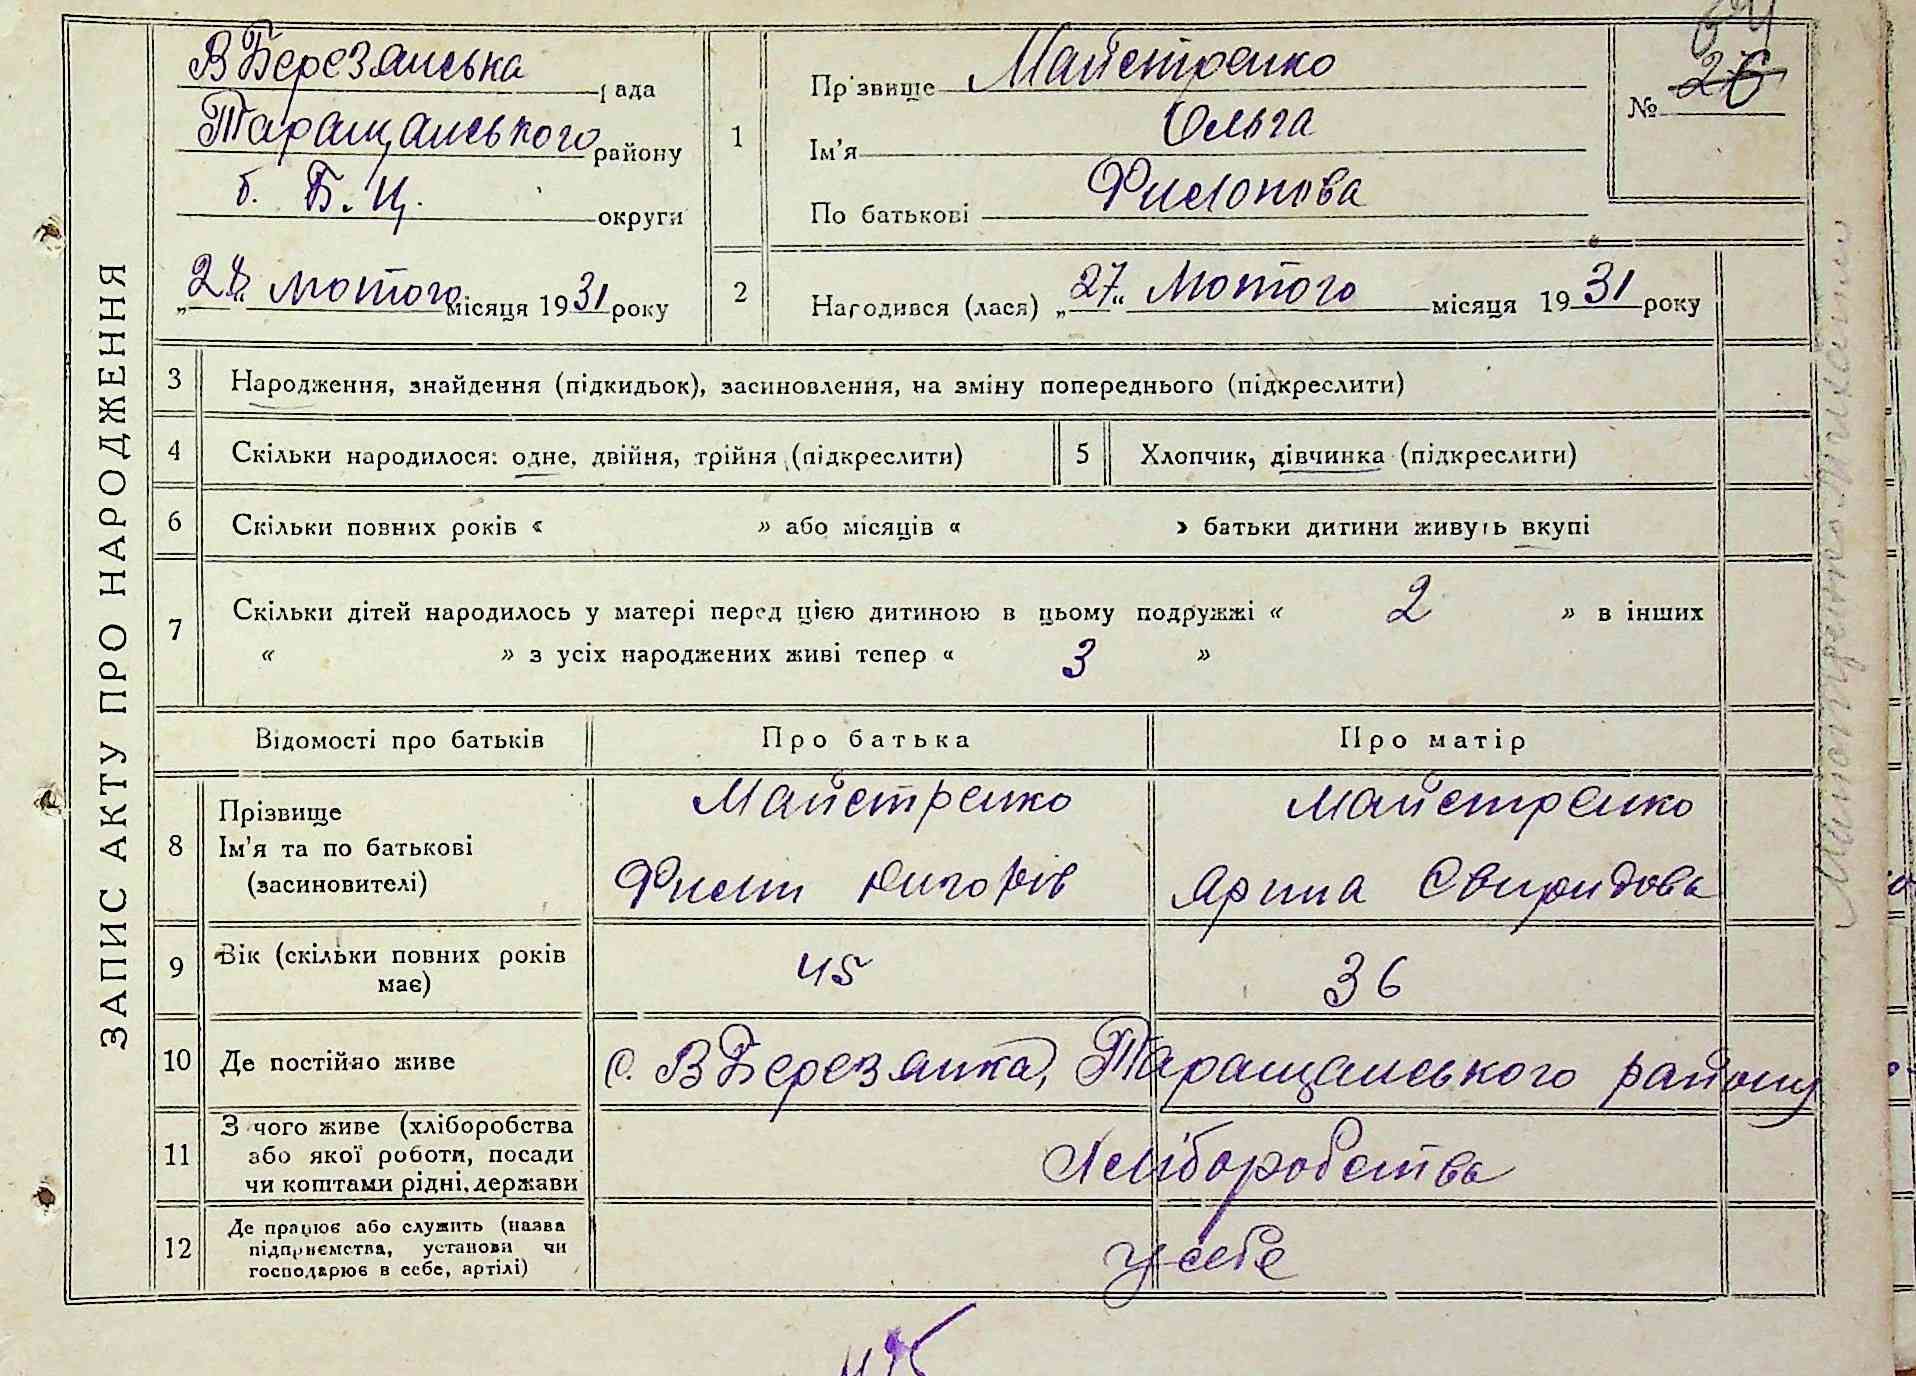 ЗАПИС АКТУ ПРО НАРОДЖЕННЯ
ВБерезянська рада
Таращанського району
б. Б.Ц. округи
„28“ лютого місяця 1931 року
1
Прізвище Майстренко
Ім'я Ольга
По батькові Филонова
№ 26
2
Народився (лася) „27“ лютого місяця 1931 року
3 Народження, знайдення (підкидьок), засиновлення, на зміну попереднього (підкреслити)
4 Скільки народилося: одне, двійня, трійня (підкреслити)
5 Хлопчик, дівчинка (підкреслити)
6 Скільки повних років « » або місяців « » батьки дитини живуть вкупі
7 Скільки дітей народилось у матері перед цією дитиною в цьому подружжі « 2 » в інших
« » з усіх народжених живі тепер « 3 »
Відомості про батьків Про батька Про матір
8 Прізвище
Ім'я та по батькові
(засиновителі)
Майстренко
Майстренко
Ярина Свиридова
9 Вік (скільки повних років
має)
45
36
10 Де постійно живе
с. ВБерезянка, Таращанського району
11 З чого живе (хліборобства
або якої роботи, посади
чи коштами рідні, держави
Хліборобства
12 Де працює або служить (назва
підприємства, установи чи
господарює в себе, артілі)
у себе